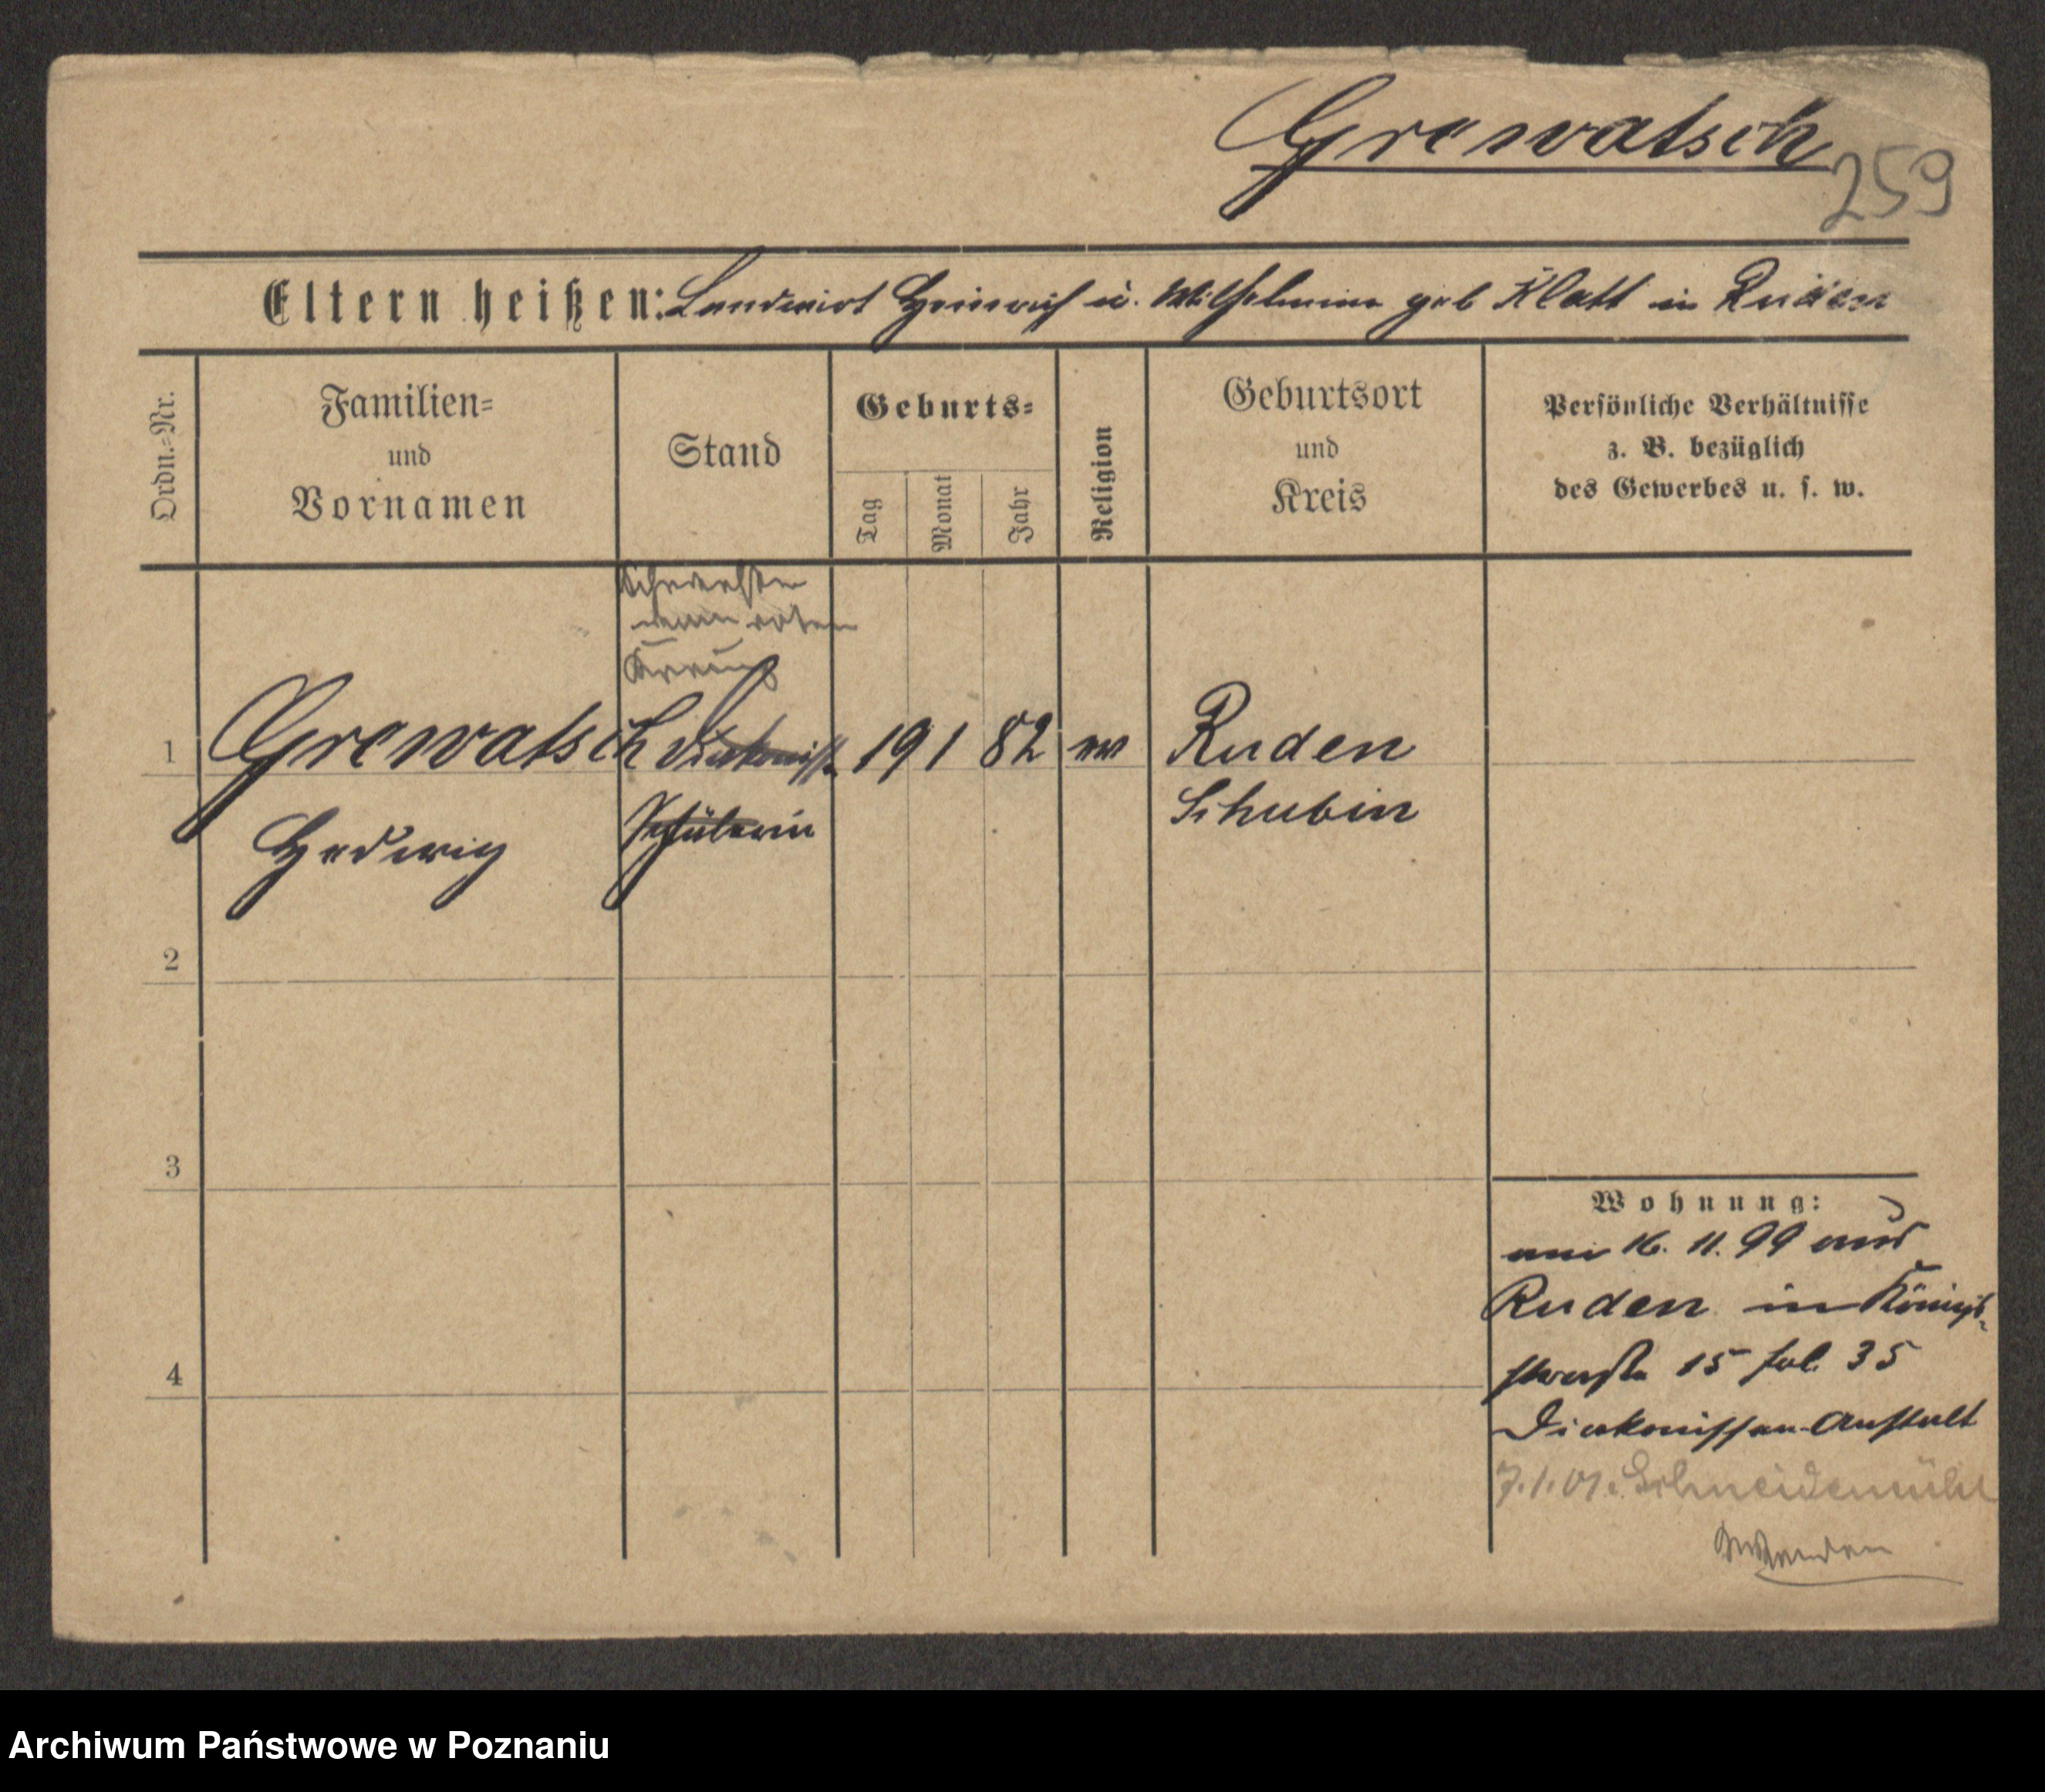 Grewatsch
259
Eltern heißen: Landwirt Heinrich u. Wilhelmine geb Klatt in Ruden
Ordn.=Nr.
Familien=
und
Vornamen
Stand
Geburts=
Tag
Monat
Jahr
Religion
Geburtsort
und
Kreis
Persönliche Verhältnisse
z. B. bezüglich
des Gewerbes u. s. w.
Schwester
vom roten
Kreuz
1 Grewatsch Diakoniss. 19 1 82 ev Ruden
Hedwig Schülerin Schubin
2
3
4
Wohnung:
am 16. 11. 99 aus
Ruden in Königs-
straße 15 fol. 35
Diakonissen-Anstalt
7.1.01. Schneidemühl